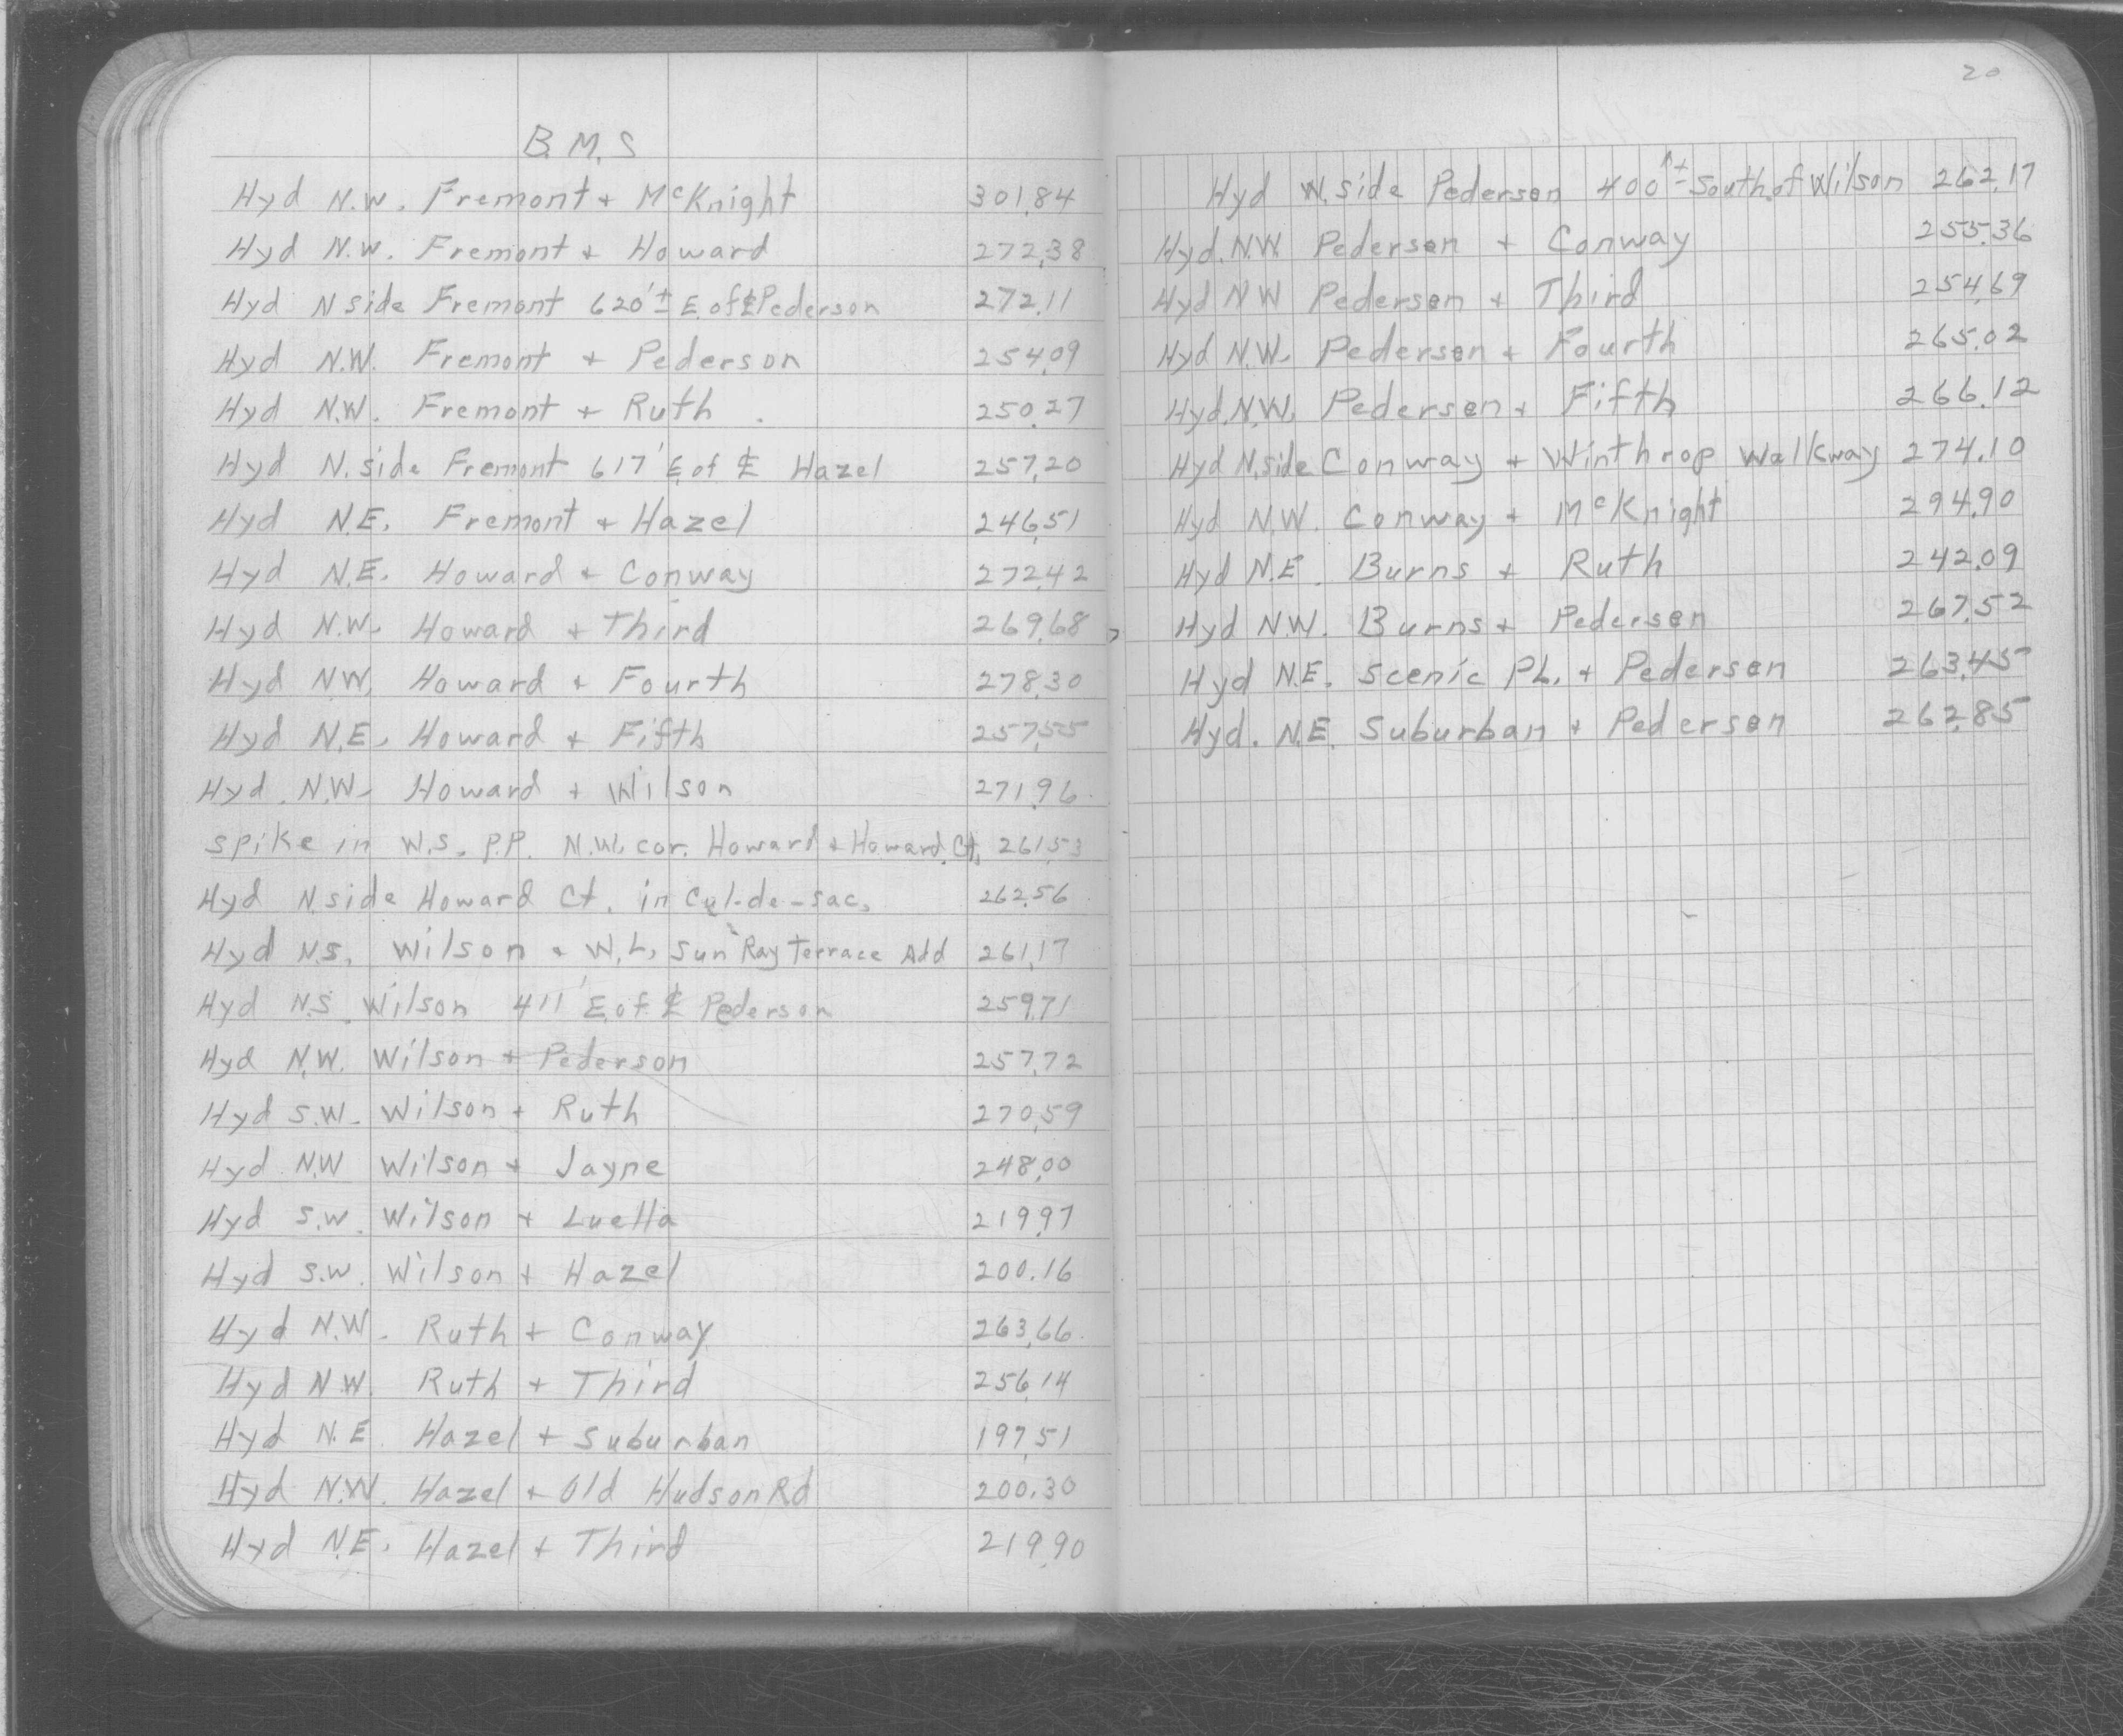 B.M.S
Hyd N.W. Fremont + McKnight 301.84
Hyd N.W. Fremont + Howard 272.38
Hyd N side Fremont 620'± E. of ℄ Pederson 272.11
Hyd N.W. Fremont + Pederson 254.09
Hyd N.W. Fremont + Ruth 250.27
Hyd N. side Fremont 617' E. of ℄ Hazel 257.20
Hyd N.E. Fremont + Hazel 246.51
Hyd N.E. Howard + Conway 272.42
Hyd N.W. Howard + Third 269.68
Hyd N.W. Howard + Fourth 278.30
Hyd N.E. Howard + Fifth 257.55
Hyd. N.W. Howard + Wilson 271.96
spike in W.S. P.P. N.W. cor. Howard + Howard Ct. 261.53
Hyd N. side Howard Ct. in Cul-de-sac. 262.56
Hyd N.S. Wilson + W.L. Sun Ray Terrace Add 261.17
Hyd N.S. Wilson 411' E. of ℄ Pederson 259.71
Hyd N.W. Wilson + Pederson 257.72
Hyd S.W. Wilson + Ruth 270.59
Hyd. N.W Wilson + Jayne 248.00
Hyd S.W. Wilson + Luella 219.97
Hyd S.W. Wilson + Hazel 200.16
Hyd N.W. Ruth + Conway 263.66
Hyd N.W. Ruth + Third 256.14
Hyd N.E. Hazel + Suburban 197.51
Hyd N.W. Hazel + Old Hudson Rd 200.30
Hyd N.E. Hazel + Third 219.90
20
Hyd W. side Pedersen 400'± South of Wilson 262.17
Hyd. N.W. Pedersen + Conway 255.36
Hyd NW Pedersen + Third 254.69
Hyd N.W. Pedersen + Fourth 265.02
Hyd. N.W. Pedersen + Fifth 266.12
Hyd N. side Conway + Winthrop Walkway 274.10
Hyd N.W. Conway + McKnight 294.90
Hyd N.E. Burns + Ruth 242.09
Hyd N.W. Burns + Pedersen 267.52
Hyd N.E. Scenic PL. + Pedersen 263.45
Hyd. N.E. Suburban + Pedersen 262.85